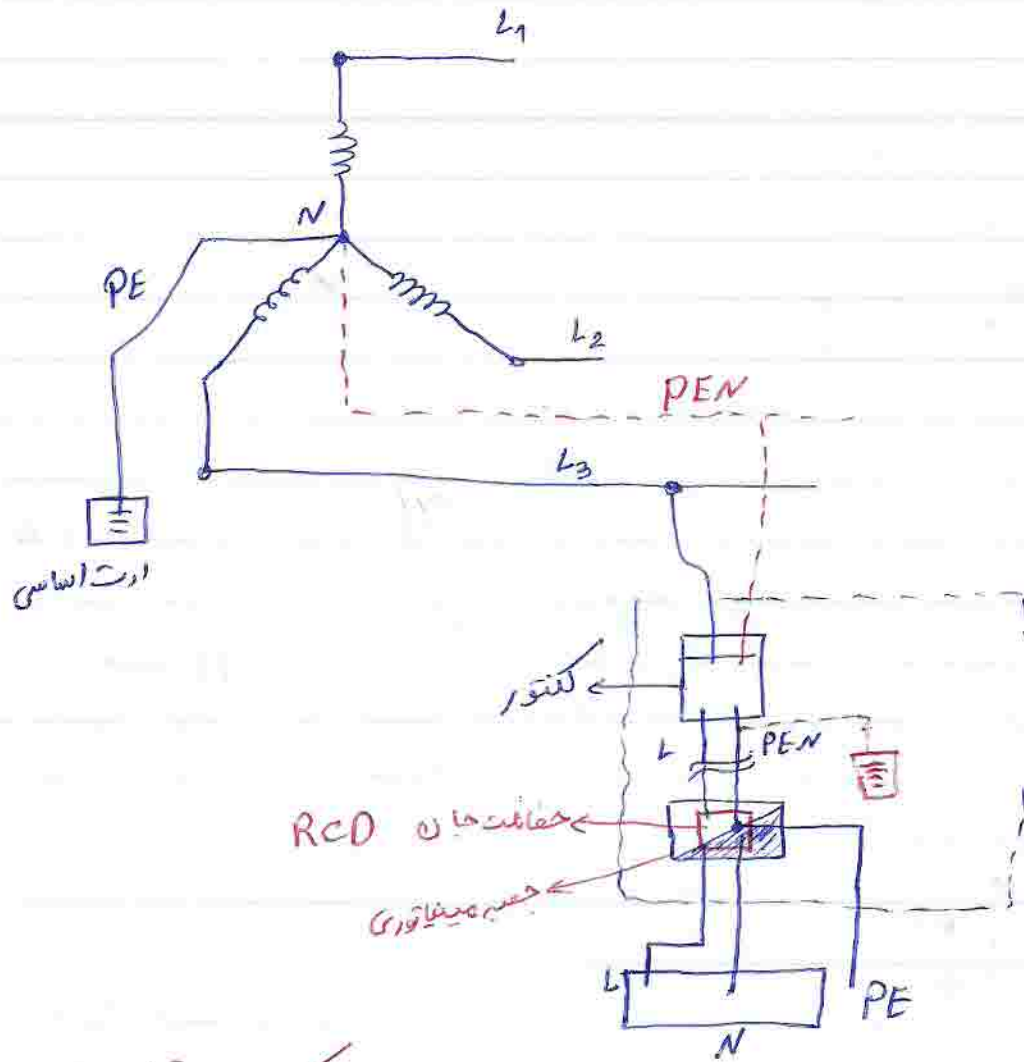 L1
N
PE
L2
PEN
L3
ارت اساسی
کنتور
L
PEN
RCD حفاظت جان
جعبه مینیاتوری
L
PE
N